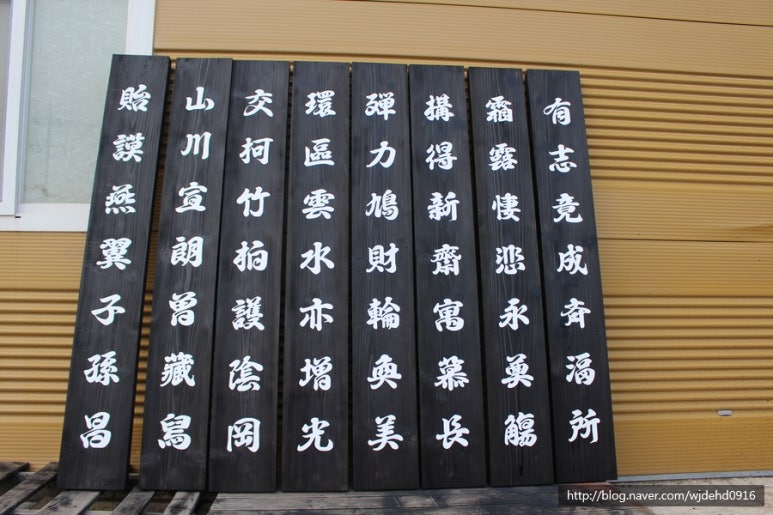 有志竟成斉湢所
霜露悽悲永奠觴
搆得新齋寓慕長
殫力鳩財輪奐美
環區雲水亦增光
交柯竹柏護陰岡
山川宣朗曾藏舃
貽謨燕翼子孫昌
http://blog.naver.com/wjdehd0916